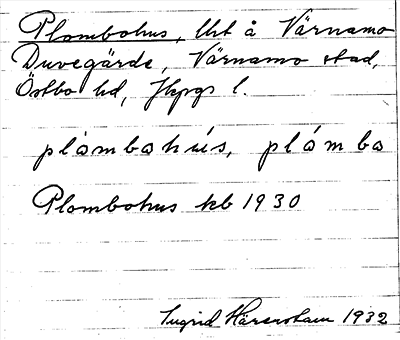 Plombohus, lht å Värnamo
Duvegärde, Värnamo stad,
Östbo hd, Jkpgs l.
plómbohús, plómbo
Plombohus kb 1930
Ingrid Härenstam 1932